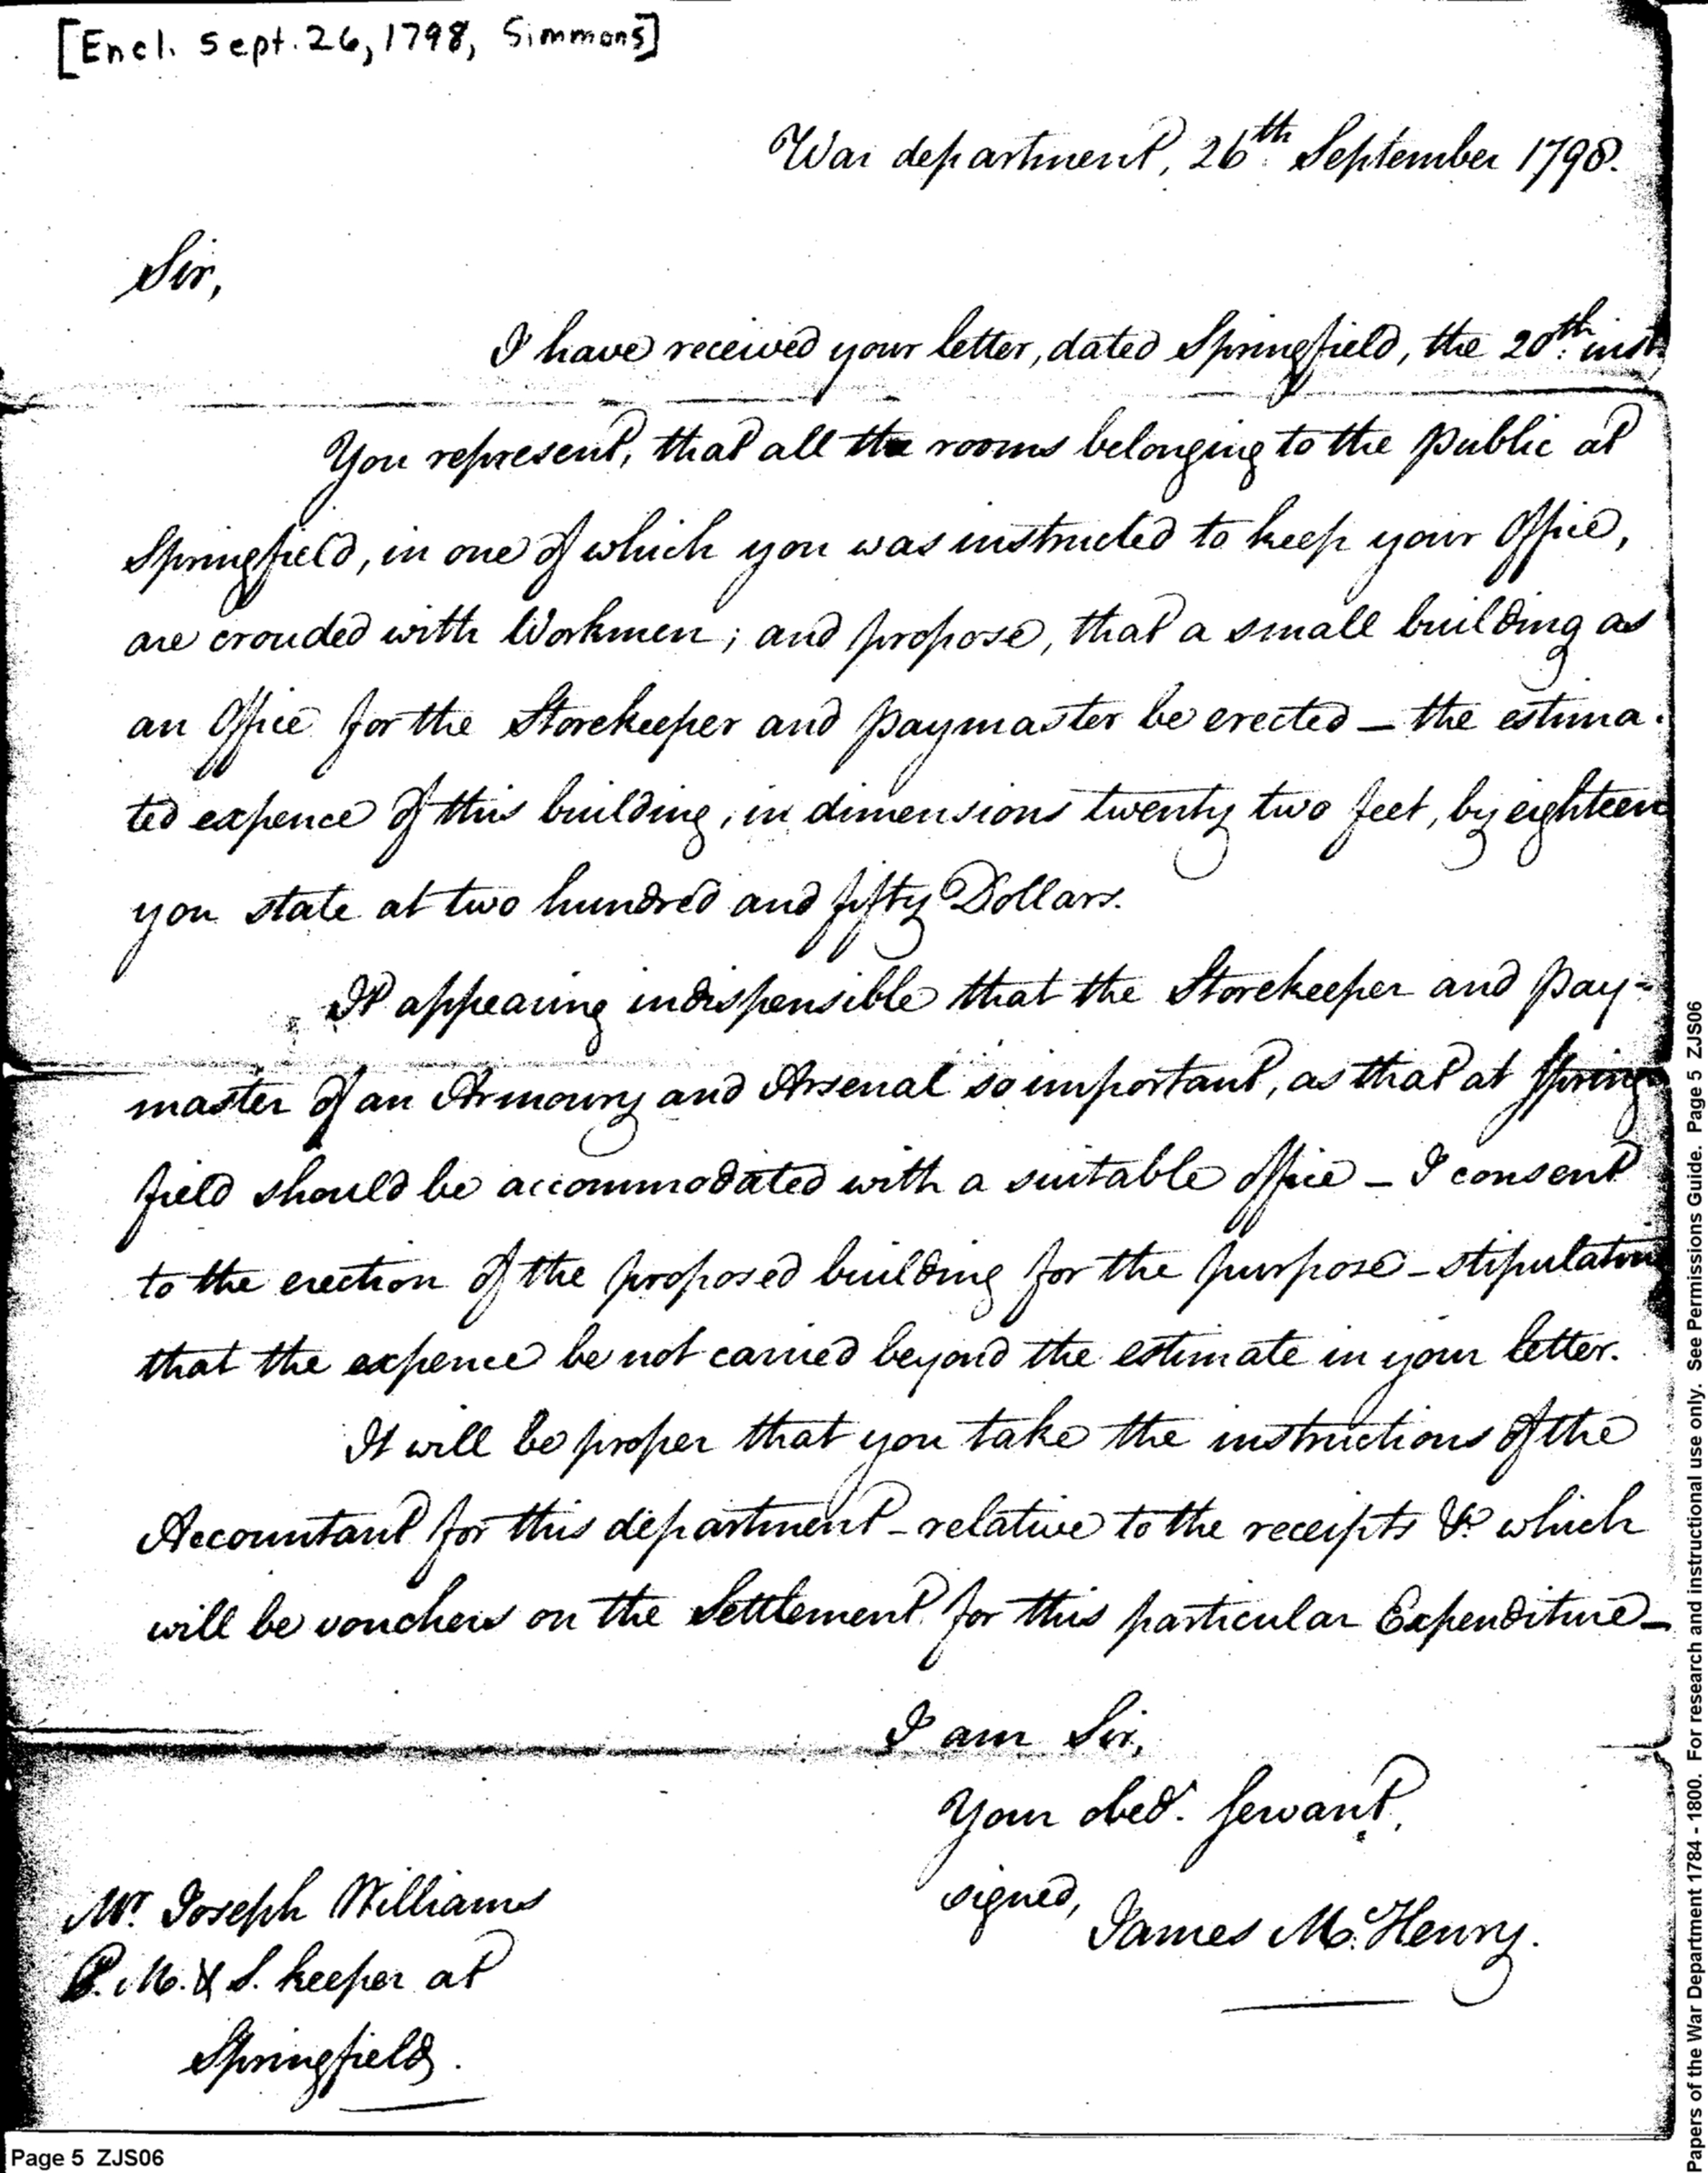 [Encl. Sept. 26, 1798, Simmons]
War department, 26th. September 1798.
Sir,
I have received your letter, dated Springfield, the 20th. inst.
You represent, that all the rooms belonging to the public at
Springfield, in one of which you was instructed to keep your Office,
are crouded with Workmen; and propose, that a small building as
an Office for the Storekeeper and Paymaster be erected — the estima-
ted expence of this building, in dimensions twenty two feet, by eighteen
you state at two hundred and fifty Dollars.
It appearing indispensible that the Storekeeper and Pay-
master of an Armoury and Arsenal so important, as that at Spring
field should be accommodated with a suitable office — I consent
to the erection of the proposed building for the purpose — stipulating
that the expence be not carried beyond the estimate in your letter.
It will be proper that you take the instructions of the
Accountant for this department — relative to the receipts &c. which
will be vouchers on the Settlement for this particular Expenditure —
I am Sir,
Your obed. Servant,
signed, James McHenry.
Mr. Joseph Williams
P. M. & S. keeper at
Springfield.
Page 5 ZJS06
Papers of the War Department 1784 - 1800. For research and instructional use only. See Permissions Guide. Page 5 ZJS06